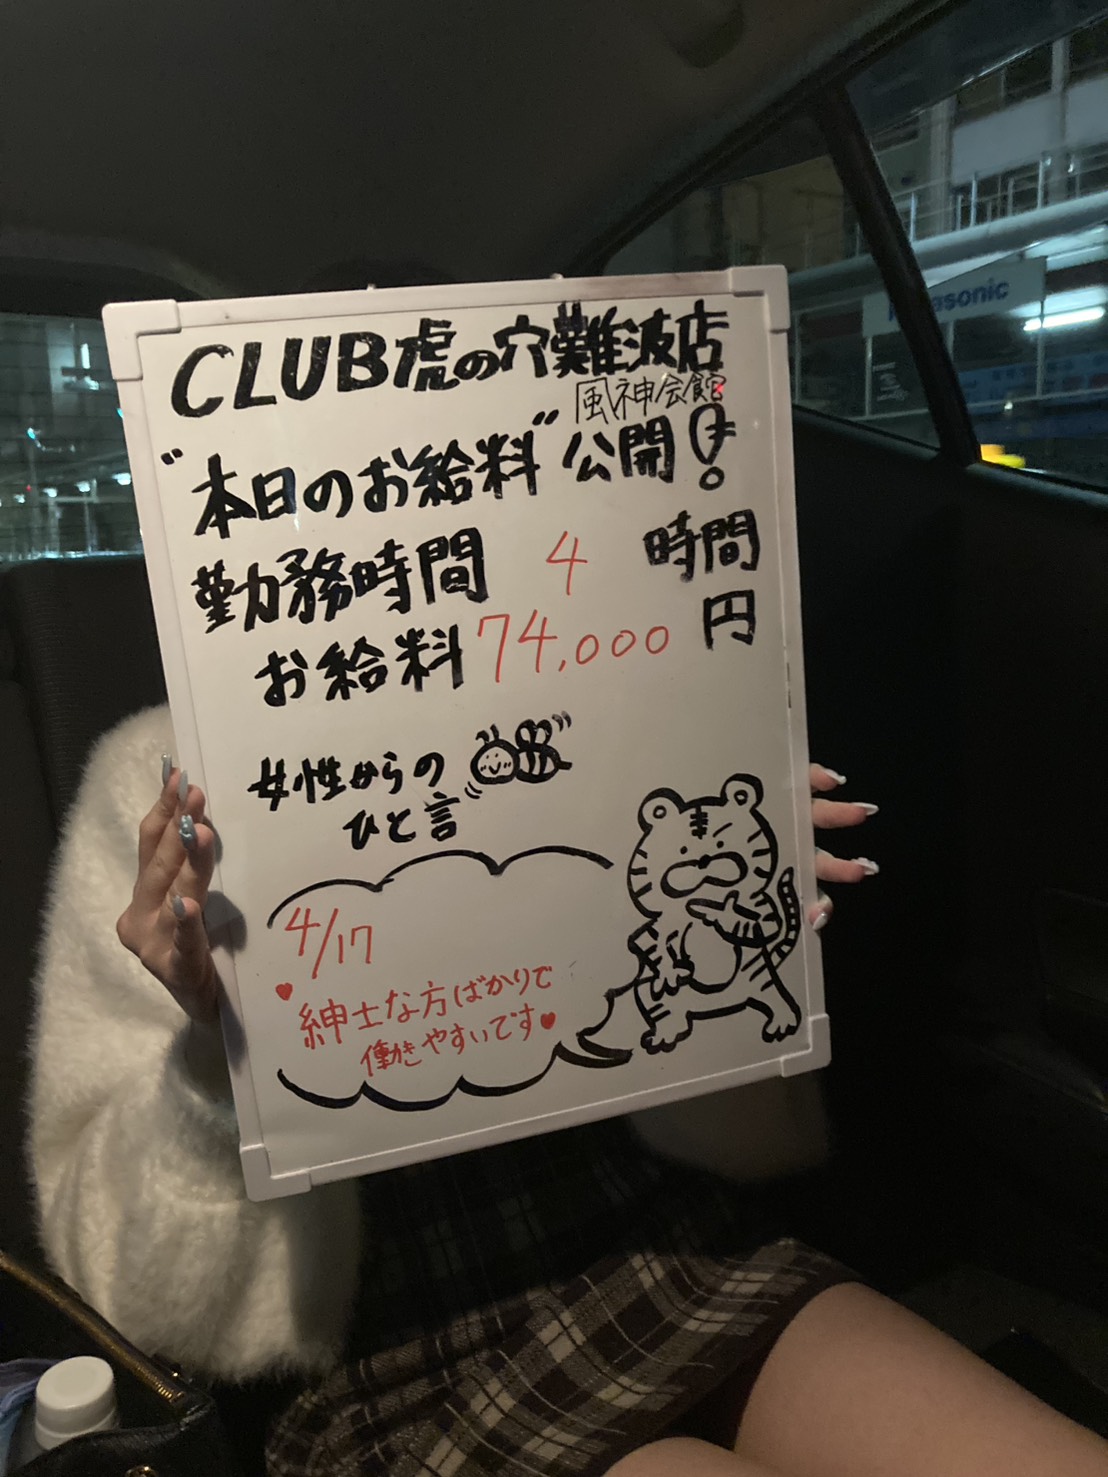 CLUB虎の穴難波店
風神会館
"本日のお給料"公開!
勤務時間 4 時間
お給料 74,000 円
女性からの
ひと言
4/17
♥紳士な方ばかりで
働きやすいです♥
Panasonic